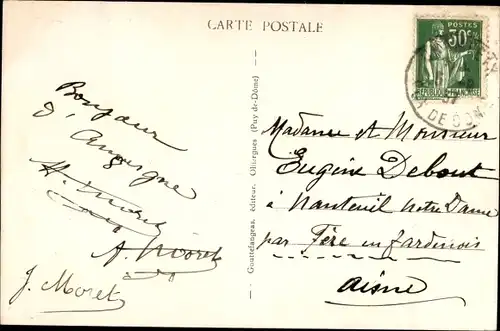 CARTE POSTALE
POSTES
30c
RÉPUBLIQUE FRANÇAISE
DE DÔME
Bonjour
d'Auvergne
A. Moret
J. Moret
Gouttefangeas, éditeur. Olliergues (Puy-de-Dôme)
Madame et Monsieur
Eugène Debout
à Nanteuil Notre Dame
par Fère en Tardenois
Aisne